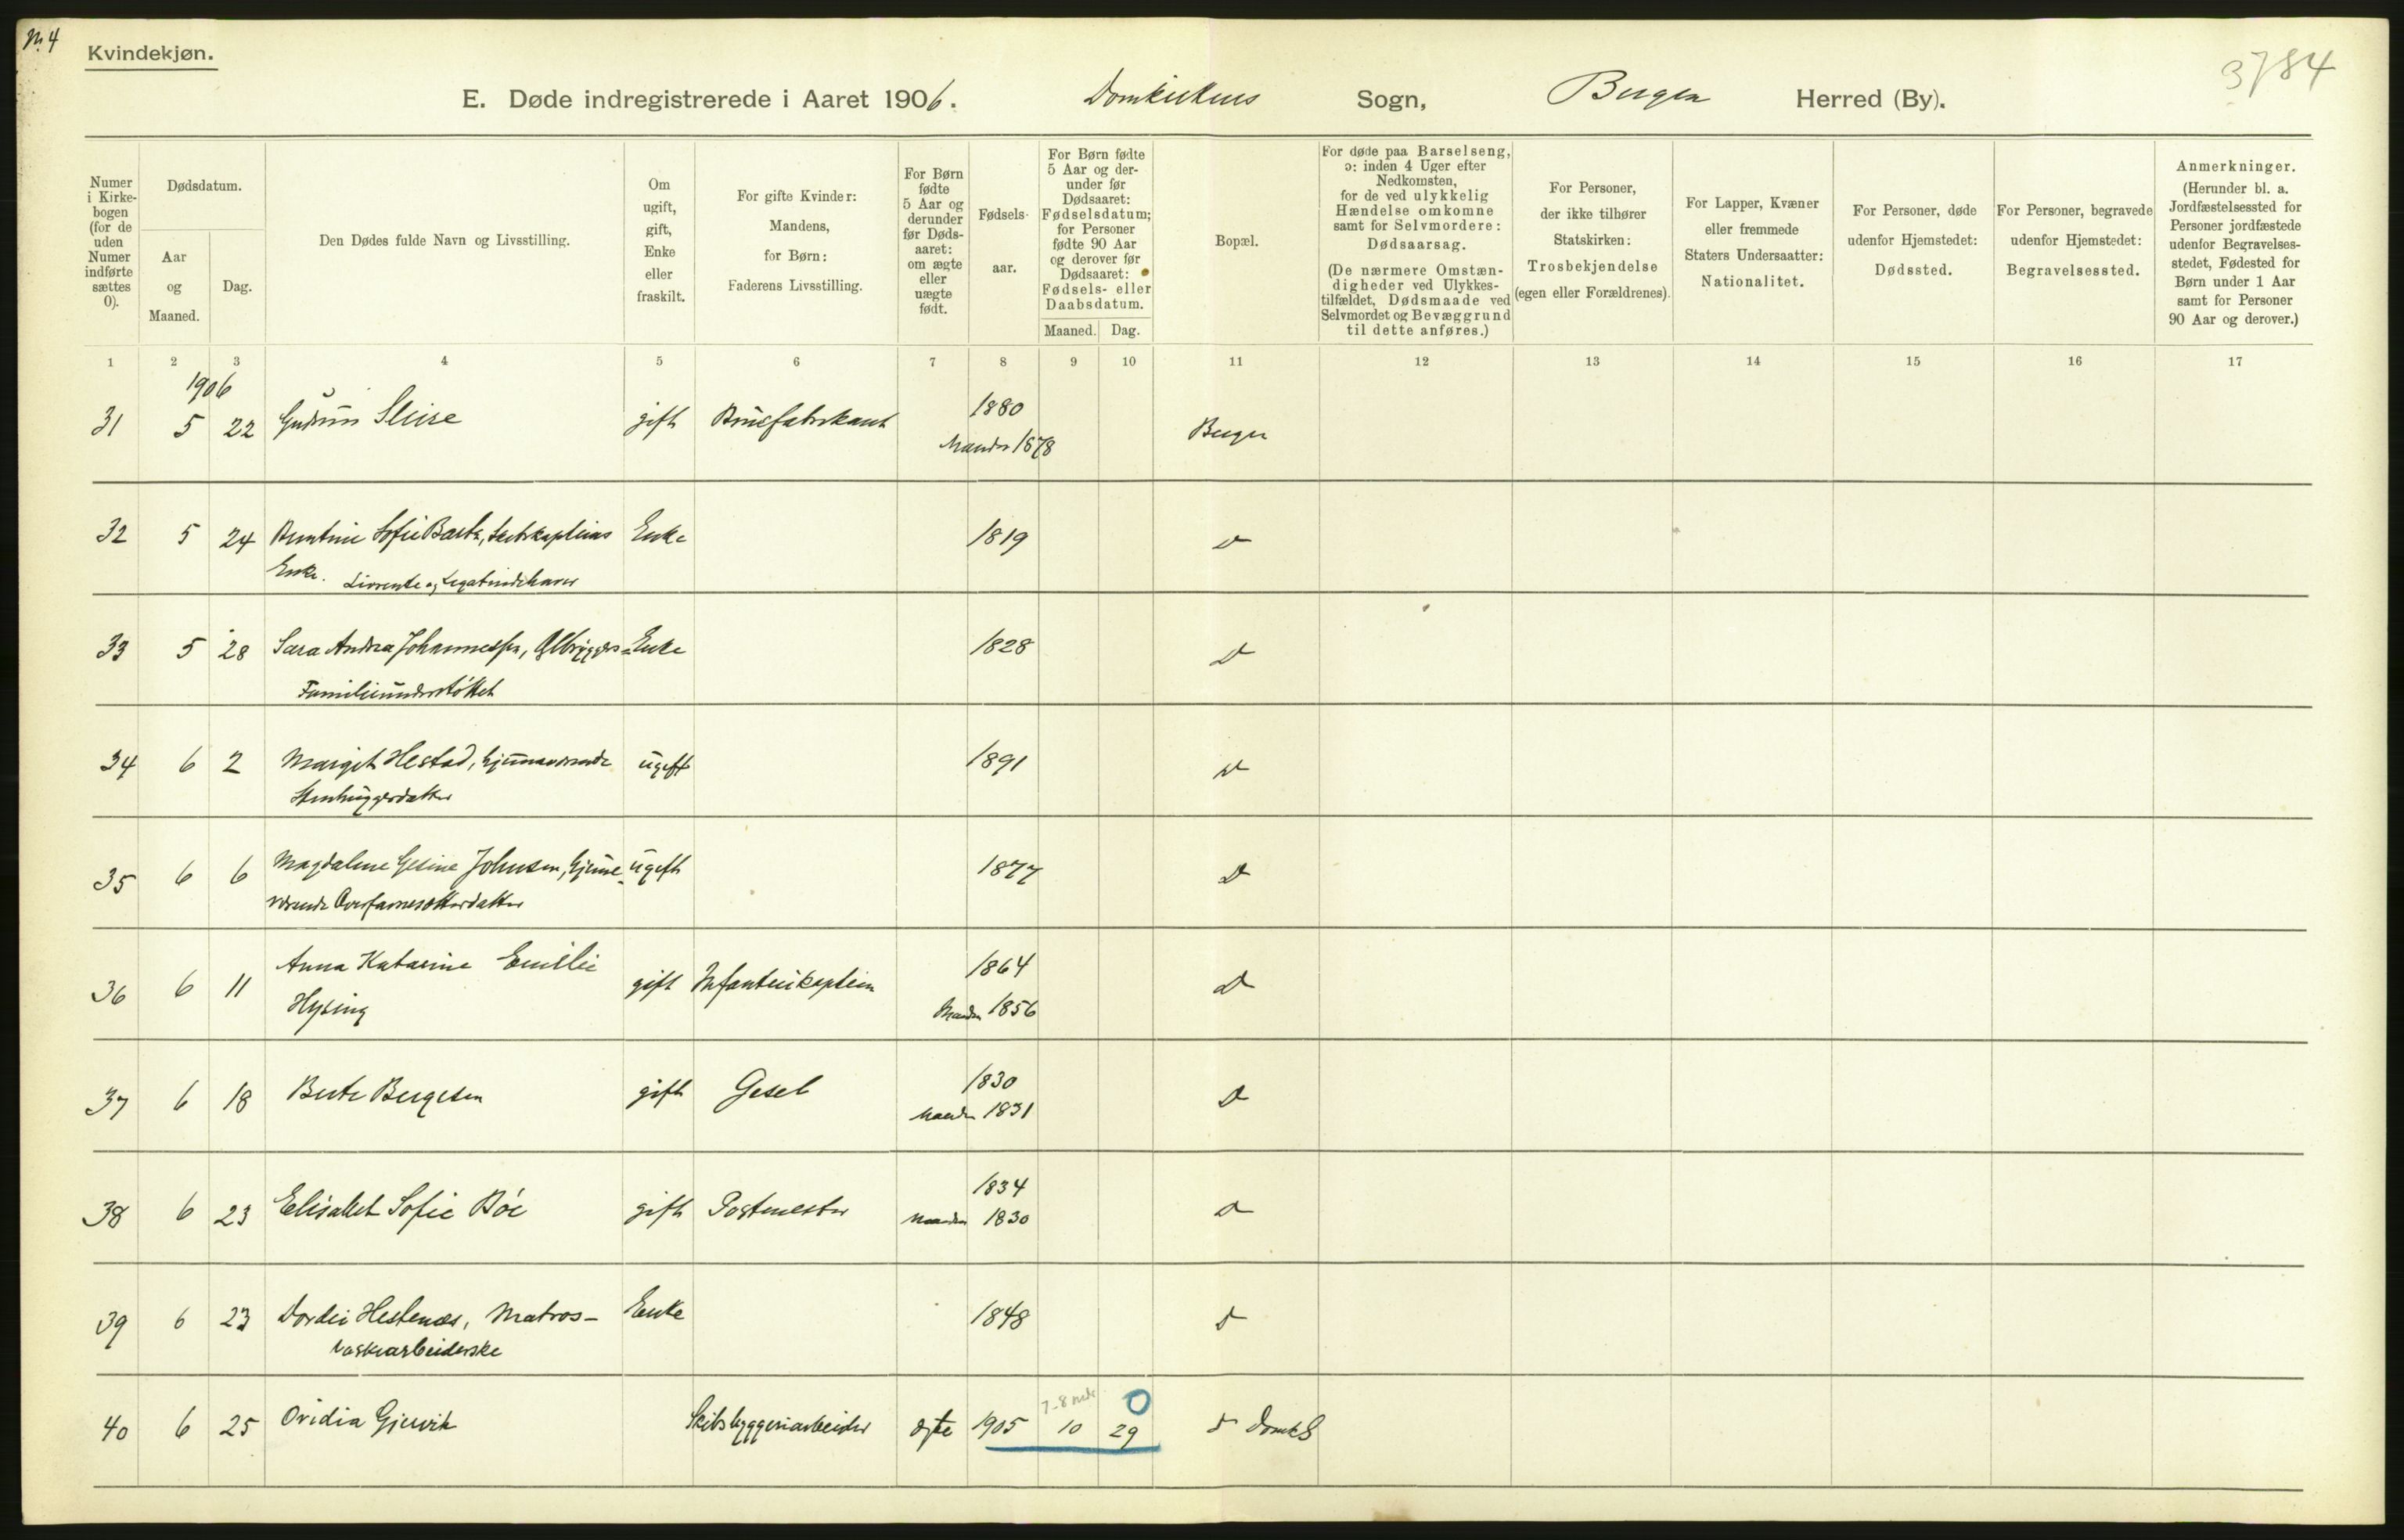 N. 4
Kvindekjøn.
3784
E. Døde indregistrerede i Aaret 1906. Domkirkens Sogn, Bergen Herred (By).
Numer
i Kirke-
bogen
(for de
uden
Numer
indførte
sættes
0).
Dødsdatum.
Aar
og
Maaned.
Dag.
Den Dødes fulde Navn og Livsstilling.
Om
ugift,
gift,
Enke
eller
fraskilt.
For gifte Kvinder:
Mandens,
for Børn:
Faderens Livsstilling.
For Børn
fødte
5 Aar og
derunder
før Døds-
aaret:
om ægte
eller
uægte
født.
Fødsels-
aar.
For Børn fødte
5 Aar og der-
under før
Dødsaaret:
Fødselsdatum;
for Personer
fødte 90 Aar
og derover før
Dødsaaret:
Fødsels- eller
Daabsdatum.
Maaned. Dag.
Bopæl.
For døde paa Barselseng,
ɔ: inden 4 Uger efter
Nedkomsten,
for de ved ulykkelig
Hændelse omkomne
samt for Selvmordere:
Dødsaarsag.
(De nærmere Omstæn-
digheder ved Ulykkes-
tilfældet, Dødsmaade ved
Selvmordet og Bevæggrund
til dette anføres.)
For Personer,
der ikke tilhører
Statskirken:
Trosbekjendelse
(egen eller Forældrenes).
For Lapper, Kvæner
eller fremmede
Staters Undersaatter:
Nationalitet.
For Personer, døde
udenfor Hjemstedet:
Dødssted.
For Personer, begravede
udenfor Hjemstedet:
Begravelsessted.
Anmerkninger.
(Herunder bl. a.
Jordfæstelsessted for
Personer jordfæstede
udenfor Begravelses-
stedet, Fødested for
Børn under 1 Aar
samt for Personer
90 Aar og derover.)
1 2 3 4 5 6 7 8 9 10 11 12 13 14 15 16 17
1906
31 5 22 Gudrun gift Brusfabrikant 1880 Bergen
Manden 1878
32 5 24 Sofie Enke 1819 D
Enke. Livrente og Legatindehaver
33 5 28 Sara Andrea Johannessen, Enke 1828 D
Familieunderstøttet
34 6 2 Margit Hestad, hjemmeværende ugift 1891 D
Stenhuggerdatter
35 6 6 Magdalene Gesine Johnsen, hjemme- ugift 1877 D
værende
36 6 11 Anna Katarine Emilie gift Infanterikaptein 1864 D
Hysing Manden 1856
37 6 18 Berte Bergesen gift Gesel 1830 D
Manden 1831
38 6 23 Elisabet Sofie Bøe gift Postmester 1834 D
Manden 1830
39 6 23 Dordei Hestenes, Matros- Enke 1848 D
vaskearbeiderske
7-8 mdr. 0
40 6 25 Ovidia Gjervik Skibsbyggeriarbeider ægte 1905 10 29 D DomkS